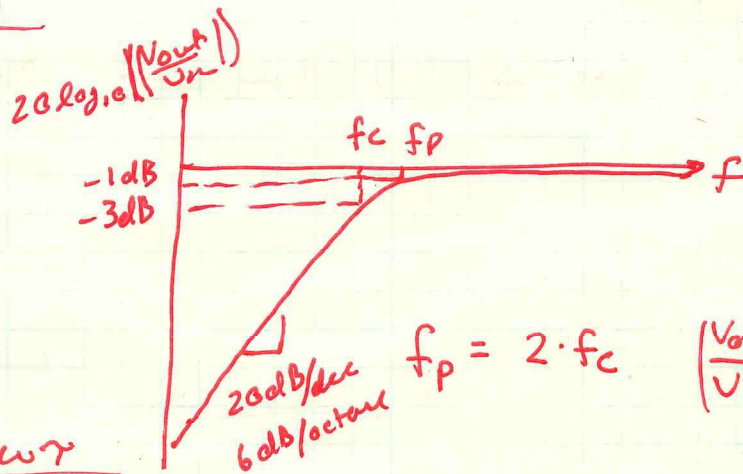 20 log10(|Vout/Vin|)
fc fp
f
-1dB
-3dB
20dB/dec
6dB/octave
fp = 2·fc
ωτ